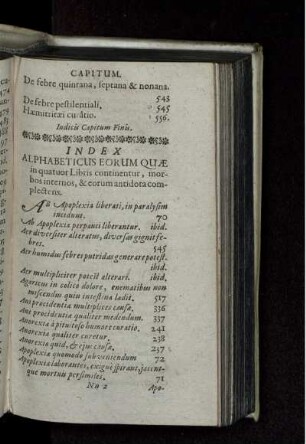 CAPITUM.
De febre quintana, septana & nonana.
543
De febre pestilentiali, 545
Hæmitritæi curatio. 556.
Indicis Capitum Finis.
INDEX
ALPHABETICUS EORUM QUÆ
in quatuor Libris continentur, mor-
bos internos, & eorum antidota com-
plectens.
AB Apoplexia liberati, in paralysim
incidunt. 70
Ab Apoplexia perpauci liberantur. ibid.
Aer diversiter alteratus, diversas gignit fe-
bres. 545
Aer humidus febres putridas generare potest.
ibid.
Aer multipliciter potest alterari. ibid.
Agaricus in colico dolore, enematibus non
miscendus quia intestina lædit. 517
Ani procidentia multiplices causæ. 336
Ani procidentia qualiter medendum. 337
Anorexia à pituitoso humore curatio. 241
Anorexia qualiter curetur. 238
Anorexia quid, & ejus causæ. 237
Apoplexia quomodo subveniendum 72
Apoplexia laborantes, exiguè spirant, jacent-
que mortuis persimiles. 71
Nn 2 Apo-